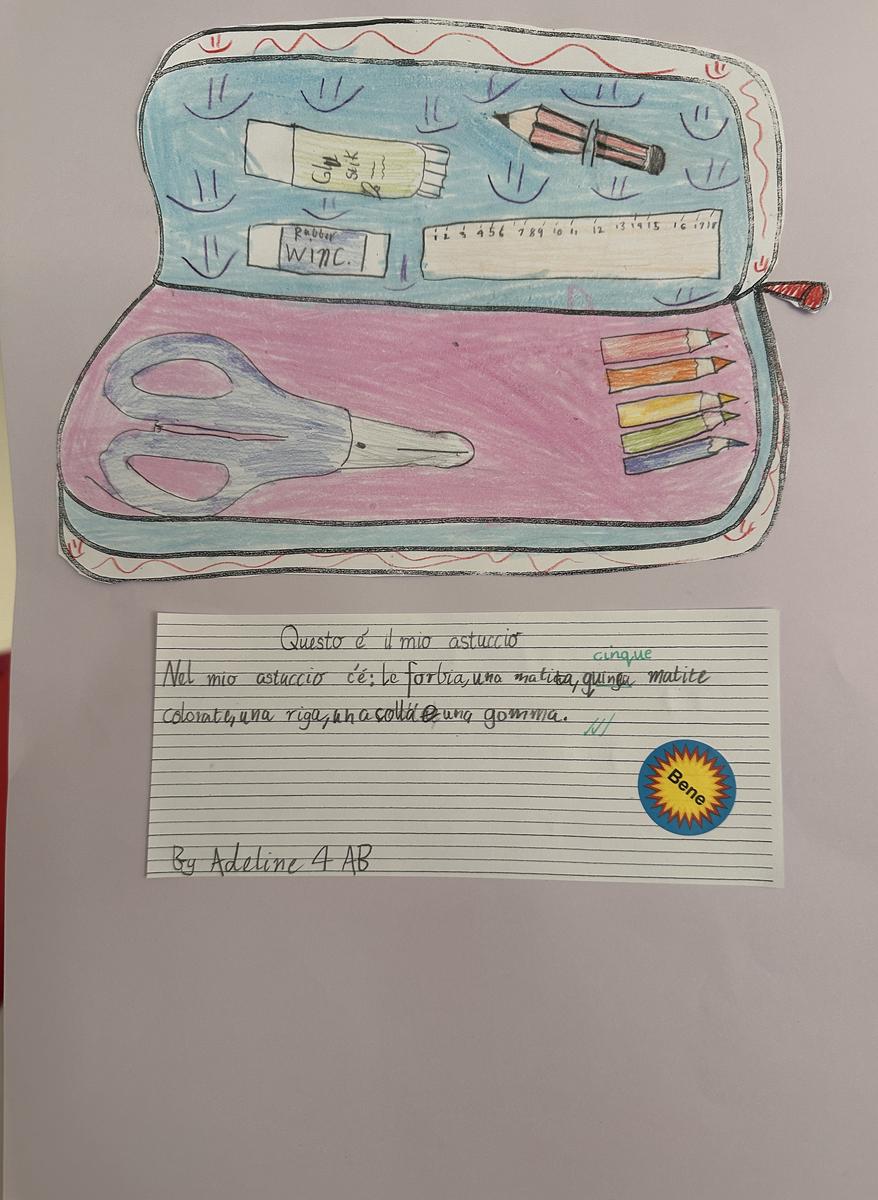 Glu
stik
Rubber
WINC.
1 2 3 4 5 6 7 8 9 10 11 12 13 14 15 16 17 18
Questo é il mio astuccio
cinque
Nel mio astuccio c'é: Le forbia, una matita, quinqa matite
colorate, una riga, una colla e una gomma.
Bene
By Adeline 4 AB